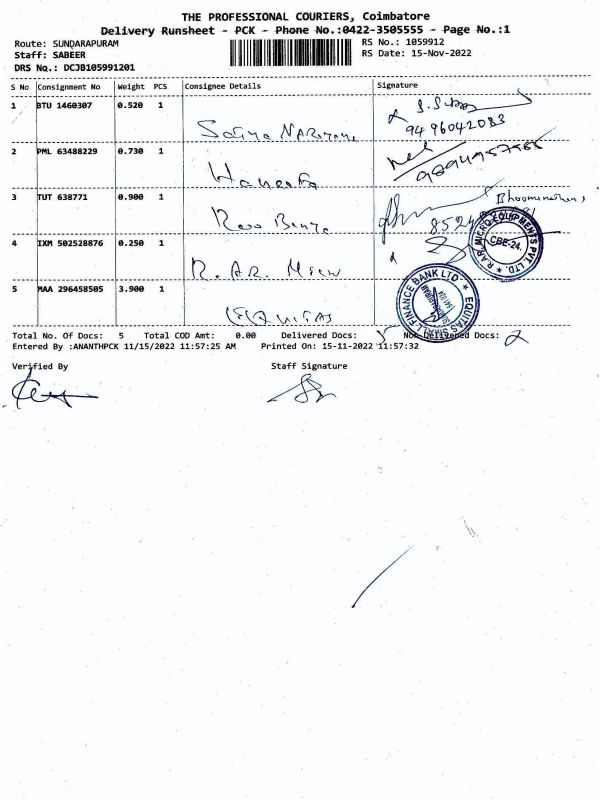 THE PROFESSIONAL COURIERS, Coimbatore
Delivery Runsheet - PCK - Phone No.:0422-3505555 - Page No.:1
Route: SUNDARAPURAM
RS No.: 1059912
Staff: SABEER
RS Date: 15-Nov-2022
DRS No.: DCJB105991201
S No Consignment No Weight PCS Consignee Details Signature
1 BTU 1460307 0.520 1
9496042083
2 PML 63488229 0.730 1
Haneefa
3 TUT 638771 0.900 1
4 IXM 502528876 0.250 1
R.A.R. MICRO EQUIPMENTS PVT. LTD.
CBE-24.
R. AR.
5 MAA 296458505 3.900 1
EQUITAS SMALL FINANCE BANK LTD
EQUITAS
Total No. Of Docs: 5 Total COD Amt: 0.00 Delivered Docs: 5 Non-Delivered Docs:
Entered By :ANANTHPCK 11/15/2022 11:57:25 AM Printed On: 15-11-2022 11:57:32
Verified By Staff Signature